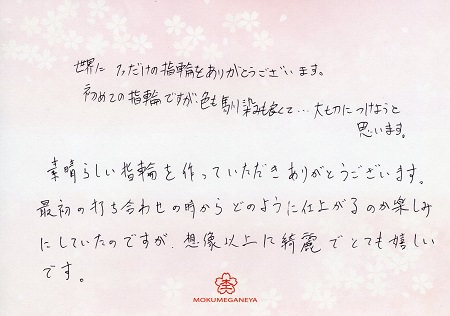 世界に1つだけの指輪をありがとうございます。
初めての指輪ですが色も馴り染みも良くて…大切につけようと
思います。
素晴らしい指輪を作っていただきありがとうございます。
最初の打ち合わせの時からどのように仕上がるのか楽しみ
にしていたのですが、想像以上に綺麗でとても嬉しい
です。
MOKUMEGANEYA